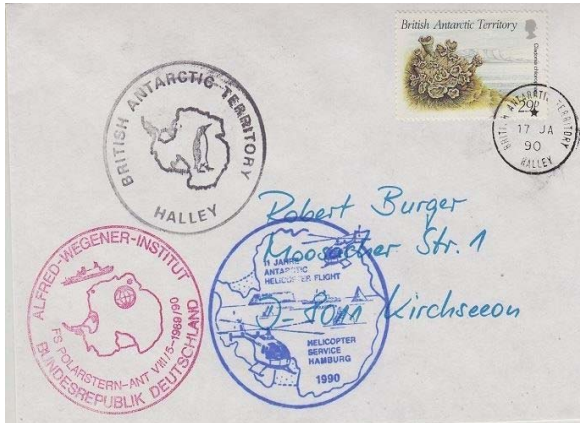 British Antarctic Territory
29p
BRITISH ANTARCTIC TERRITORY
17 JA
90
HALLEY
BRITISH ANTARCTIC TERRITORY
HALLEY
Robert Burger
Moosacher Str. 1
D-8011 Kirchseeon
ALFRED-WEGENER-INSTITUT
FS POLARSTERN-ANT VIII/5-1989/90
BUNDESREPUBLIK DEUTSCHLAND
11 JAHRE
ANTARCTIC
HELICOPTER FLIGHT
HELICOPTER
SERVICE
HAMBURG
1990